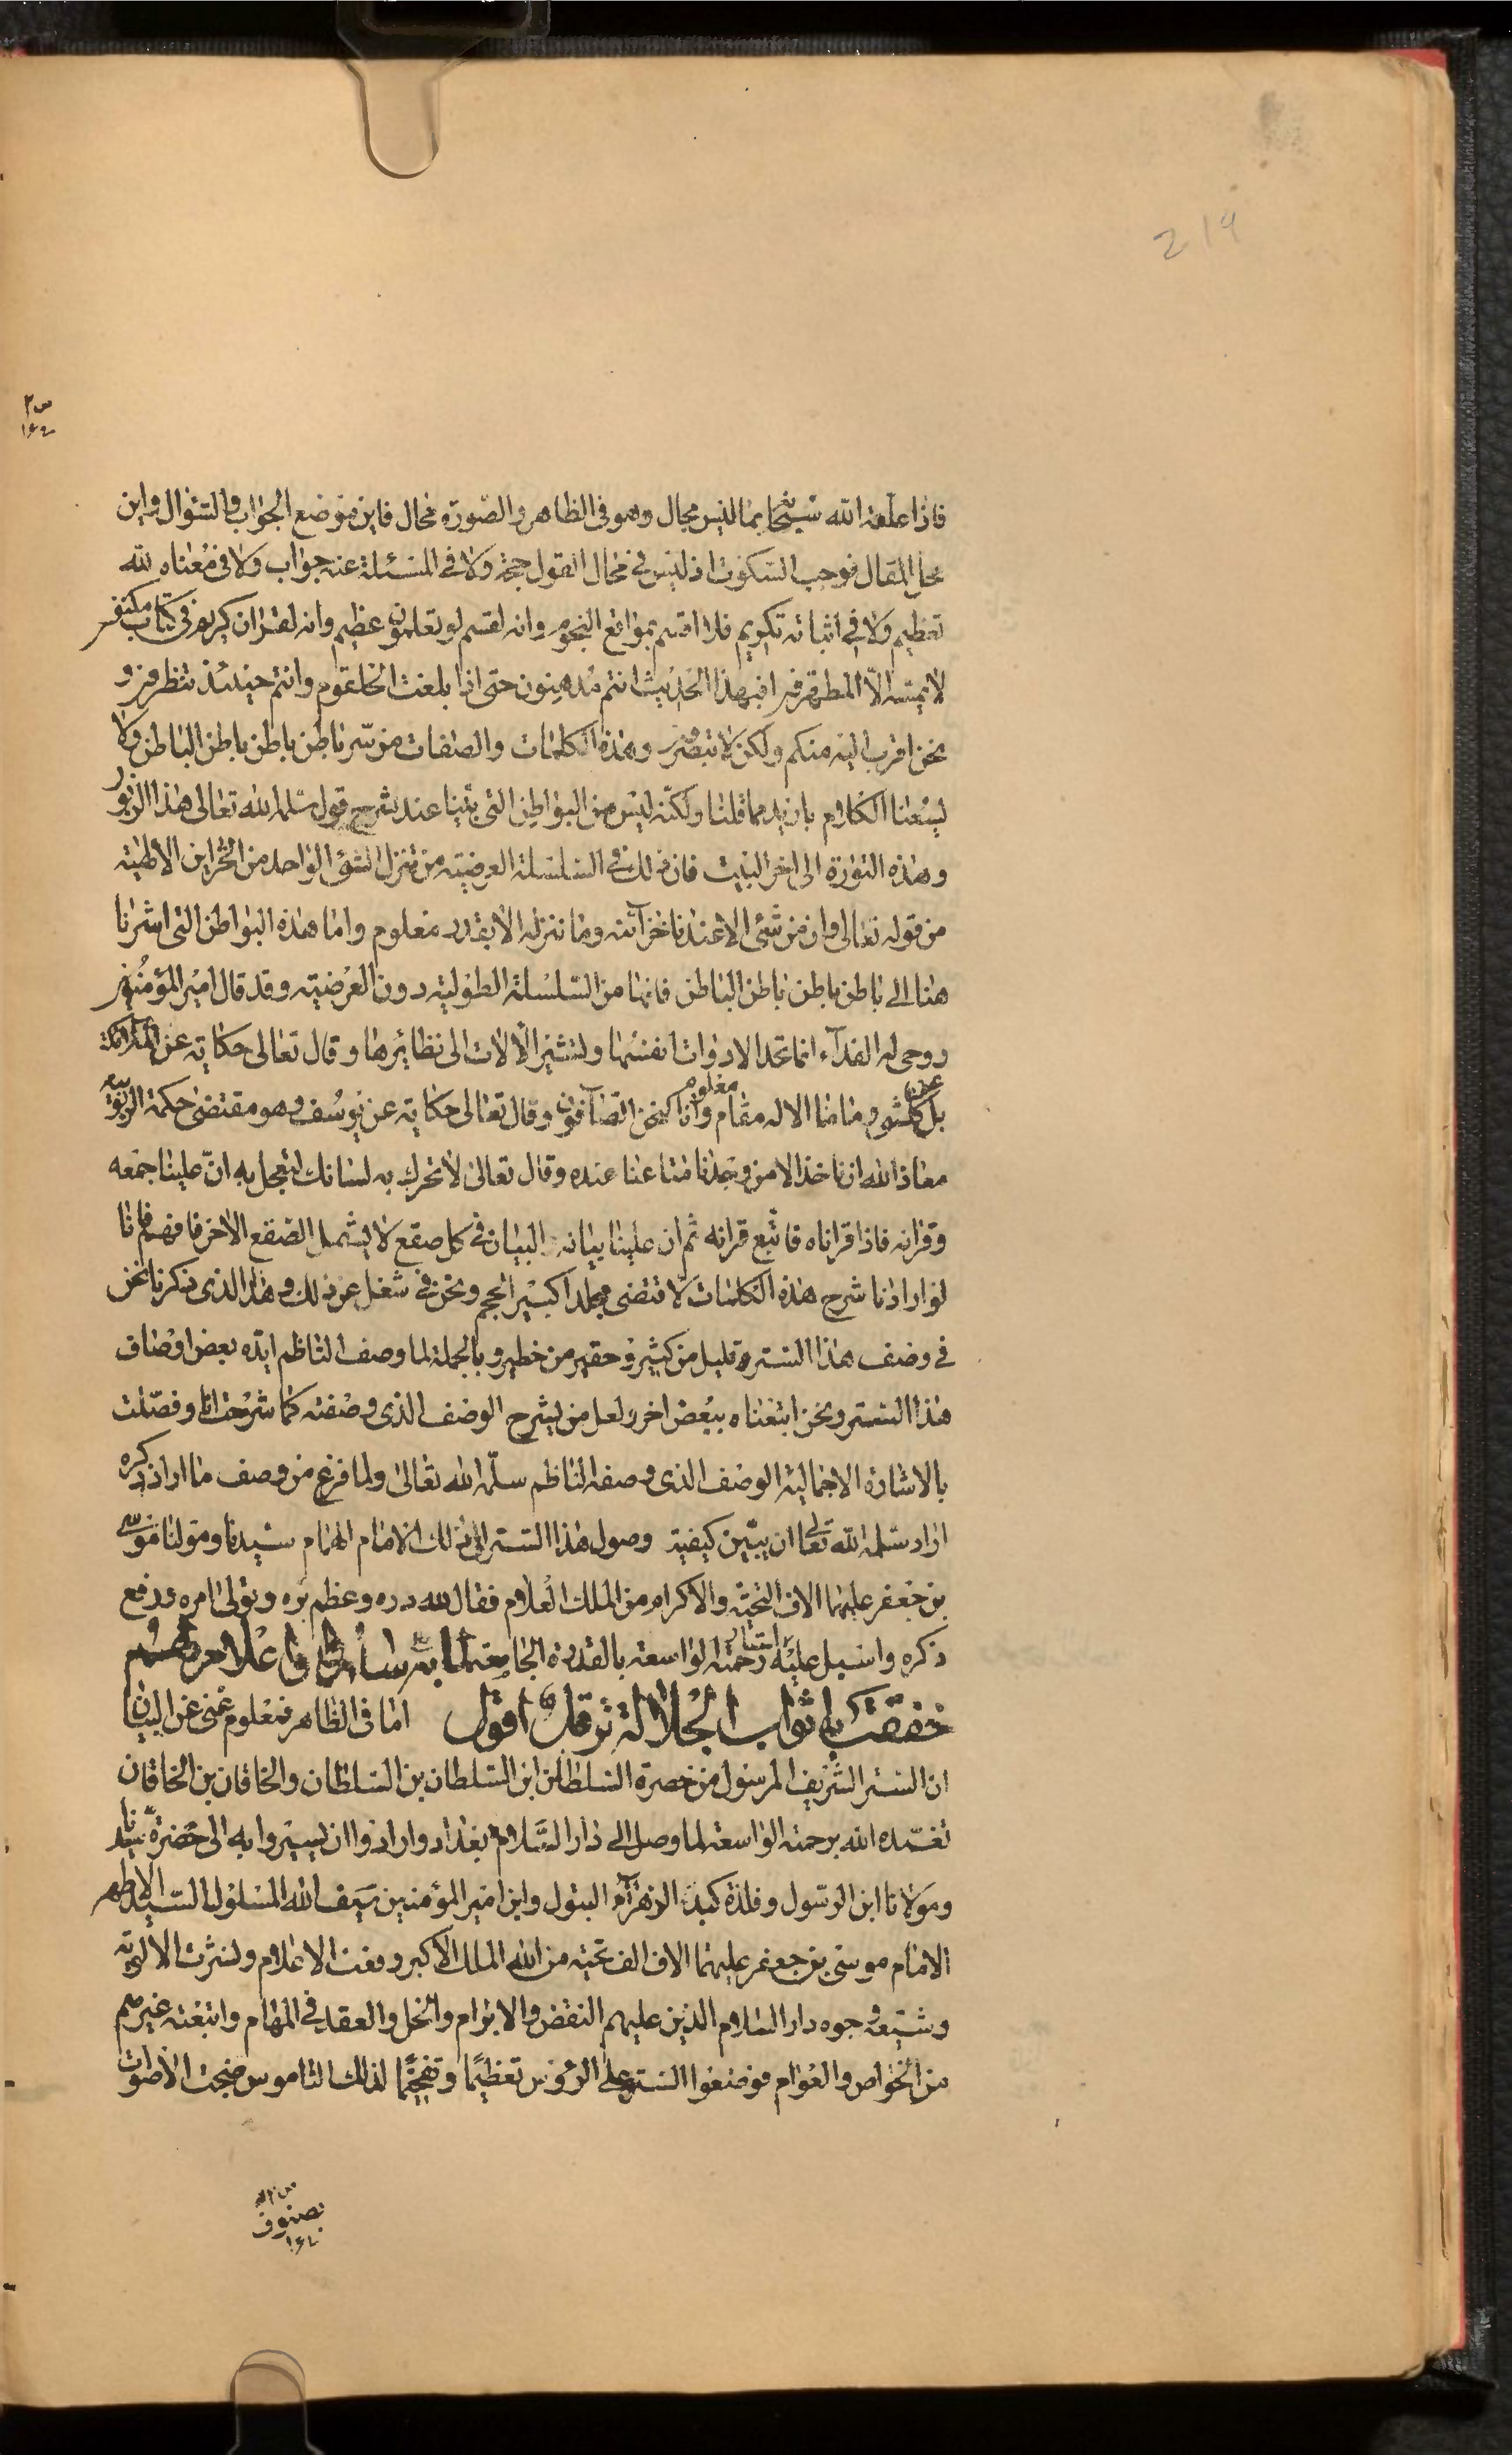 219
فاذا علمه الله شيئا بما ليس مجال وهو فى الظاهر والصورة محال فاين موضع الجواب والسئوال واين
محل المقال فوجب السكوت اذ ليس فى محال القول حجة ولا فى المسئلة عنه جواب ولا فى معناه لله
تعظيم ولا فى اثباته تكريم فلا اقسم بمواقع النجوم وانه لقسم لو تعلمون عظيم وانه لقران كريم فى كتاب مكنون
لا يمسه الا المطهرون افبهذا الحديث انتم مدهنون حتى اذا بلغت الحلقوم وانتم حينئذ تنظرون و
نحن اقرب اليه منكم ولكن لا تبصرون وهذه الكلمات والصفات من سر باطن باطن باطن الباطن ولا
يسعنا الكلام بازيد مما قلنا ولكنه ليس من البواطن التى بينا عند شرح قول سلمه الله تعالى هذا الزبور
وهذه التورة الى اخر البيت فان ذلك فى السلسلة العرضية من تنزل الشئ الواحد من الخزاين الالهية
من قوله تعالى وان من شئ الا عندنا خزآئنه وما ننزله الا بقدر معلوم واما هذه البواطن التى اشرنا
هنا الى باطن باطن باطن الباطن فانها من السلسلة الطولية دون العرضية وقد قال امير المؤمنين
روحى له الفدآء انما تحد الادوات انفسها وتشير الالات الى نظائرها وقال تعالى حكاية عن الملائكة
بل كلشئ وما منا الا له مقام معلوم وانا لنحن الصآفون وقال تعالى حكاية عن يوسف وهو مقتضى حكمة الربوبية
معاذ الله ان ناخذ الا من وجدنا متاعنا عنده وقال تعالى لا تحرك به لسانك لتعجل به ان علينا جمعه
وقرانه فاذا قراناه فاتبع قرانه ثم ان علينا بيانه البيان فى كل صقع لا يشمل الصقع الاخر فافهم فانا
لو ارادنا شرح هذه الكلمات لاقتضى مجلدا كبير الحجم ونحن فى شغل عن ذلك وهذا الذى ذكرنا نحن
فى وصف هذا الستر قليل من كثير وحقير من خطير وبالجملة لما وصف الناظم ايده بعض اوصاف
هذا الستر ونحن ابتغناه ببعض اخر ولعل من يشرح الوصف الذى وصفته كما شرحت انا وفصلت
بالاشارة الاجمالية الوصف الذى وصفه الناظم سلمه الله تعالى ولما فرغ من وصف ما اراد ذكره
اراد سلمه الله تعالى ان يبين كيفية وصول هذا الستر الى ذلك الامام الهمام سيدنا ومولنا موسى
بن جعفر عليهما الاف التحية والاكرام من الملك العلام فقال لله دره وعظم بره وتولى امره ورفع
ذكره واسبل عليه استار رحمته الواسعة بالقدرة الجامعة به واعلامهم
خفقت به اثواب الجلالة ترفل اقول اما فى الظاهر فمعلوم غنى عن البيان
ان الستر الشريف المرسول من حضرة السلطان ابن السلطان بن السلطان والخاقان بن الخاقان
تغمده الله برحمته الواسعة لما وصل الى دار السلام بغداد وارادوا ان يسيروا به الى حضرة سيدنا
ومولانا ابن الرسول وفلذة كبد الزهرآء البتول وابن امير المؤمنين سيف الله المسلول السيد الاطهر
الامام موسى بن جعفر عليهما الاف الف تحية من الله الملك الاكبر رفعت الاعلام ونشرت الالوية
وشيعه وجوه دار السلام الذين عليهم النقض والابرام والحل والعقد فى المهام واتبعته غيرهم
من الخواص والعوام فوضعوا الستر على الرؤس تعظيما وتفخيما لذلك الناموس ضجت الاصوات